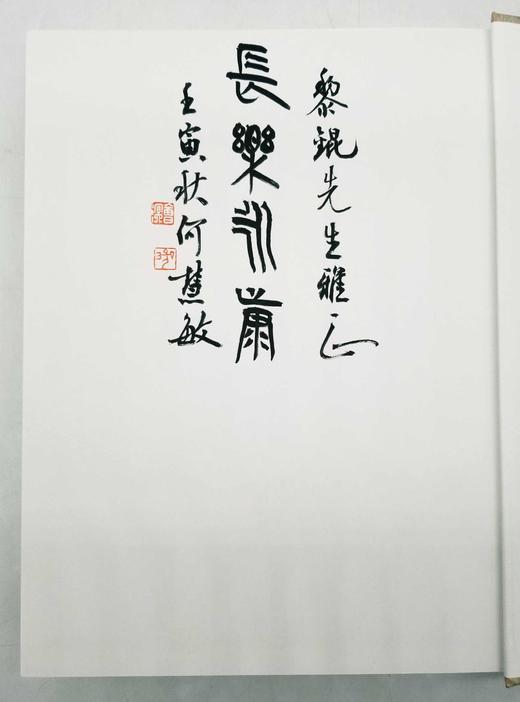 黎錕先生雅正
長樂永康
壬寅秋何蕙敏